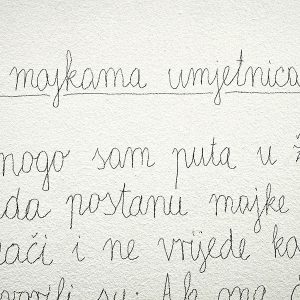 majkama umjetnica
nogo sam puta u
da postanu majke
ači i ne vrijede ka
vorili su: Ak ona